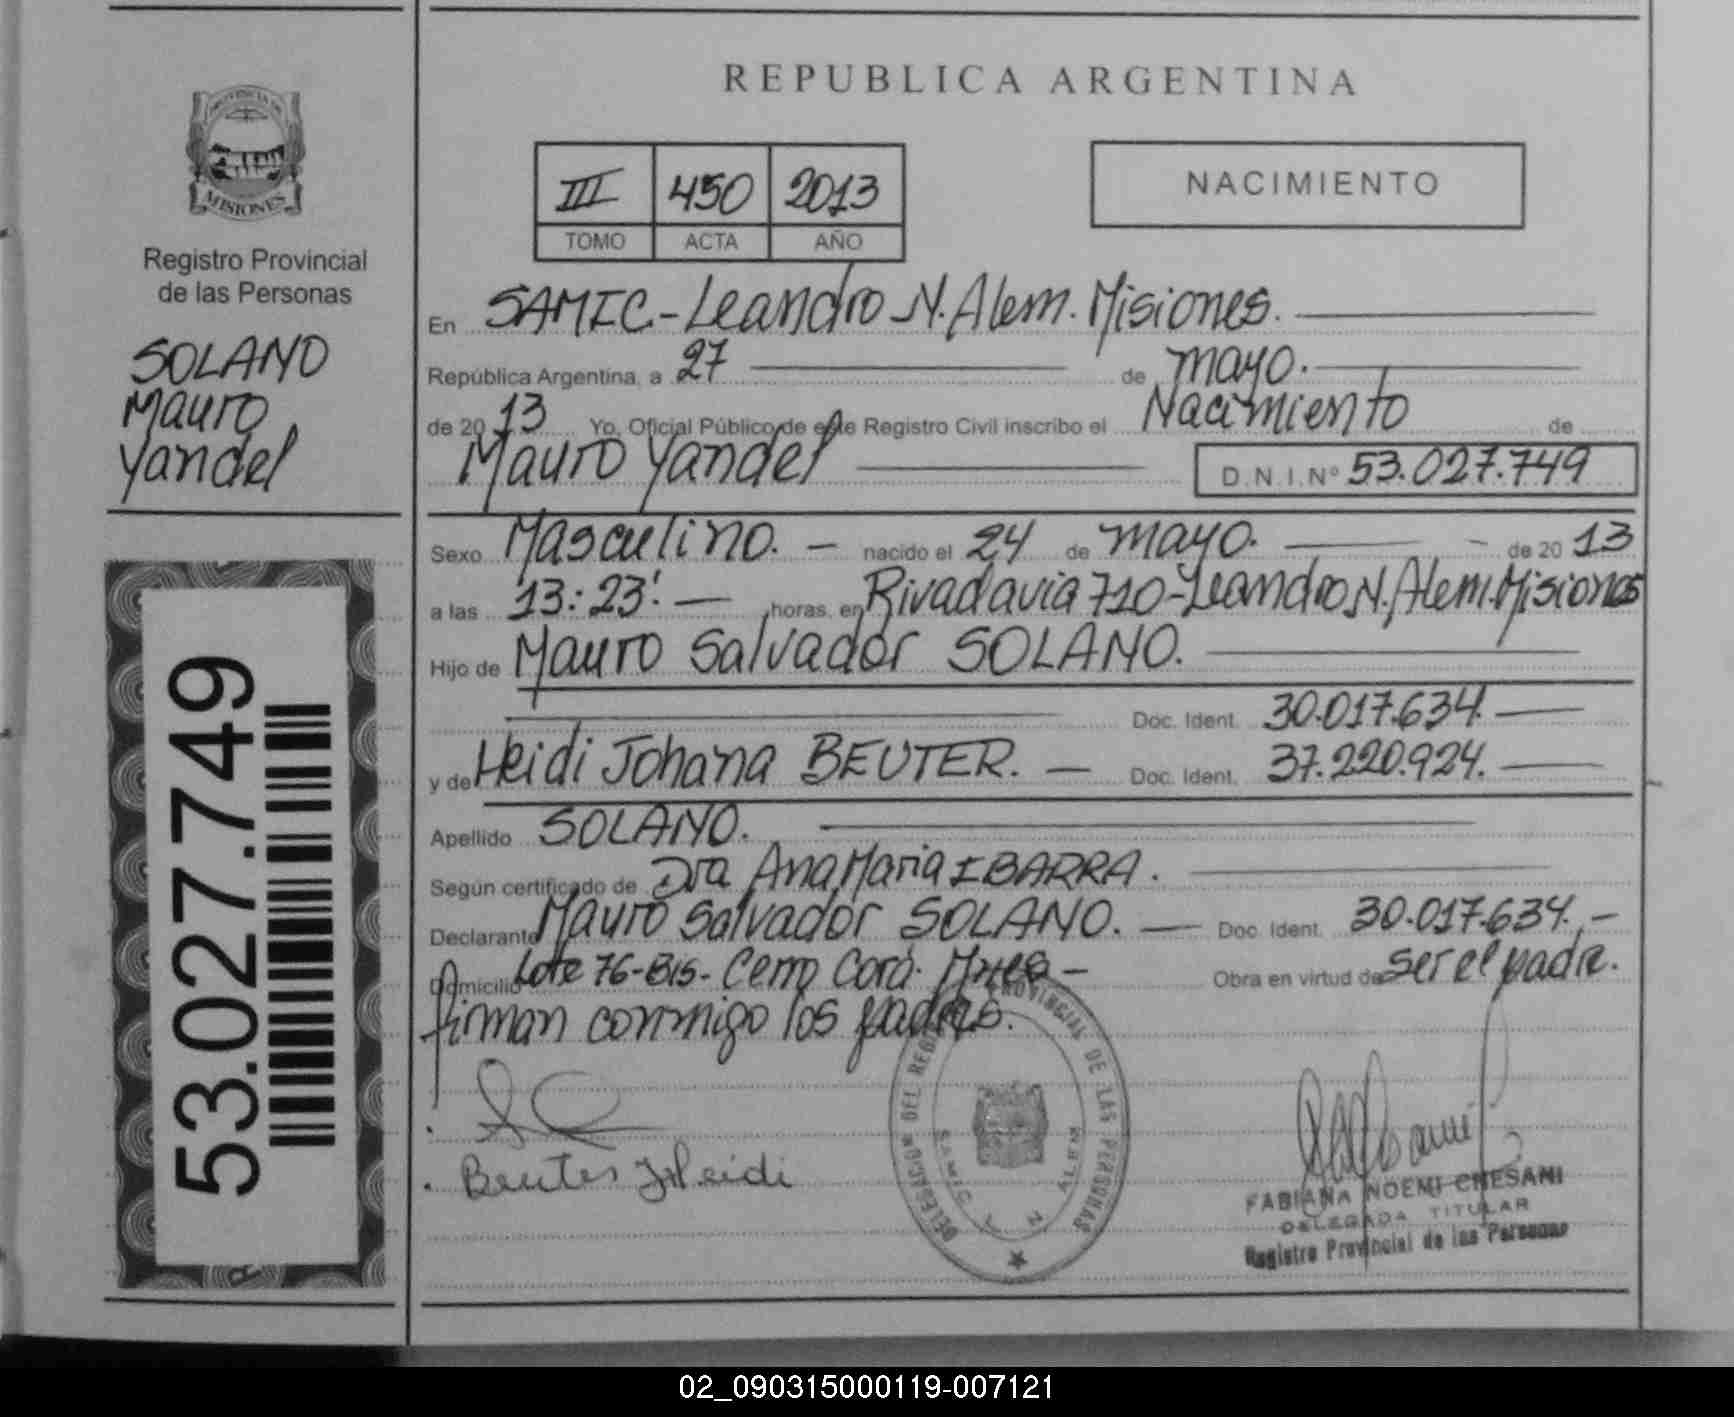 REPUBLICA ARGENTINA
PROVINCIA DE
MISIONES
Registro Provincial
de las Personas
SOLANO
Mauro
Yandel
53.027.749
III 450 2013
TOMO ACTA AÑO
NACIMIENTO
En SAMIC-Leandro N. Alem. Misiones.
República Argentina, a 27 de mayo.
de 20 13 Yo, Oficial Público de este Registro Civil inscribo el Nacimiento de
Mauro Yandel D.N.I.Nº 53.027.749
Sexo Masculino. nacido el 24 de mayo. de 20 13
a las 13:23'. horas, en Rivadavia 710-Leandro N. Alem. Misiones
Hijo de Mauro Salvador SOLANO.
Doc. Ident. 30.017.634.
y de Heidi Johana BEUTER. Doc. Ident. 37.220.924.
Apellido SOLANO.
Según certificado de Dra. Ana Maria IBARRA.
Declarante Mauro Salvador SOLANO. Doc. Ident. 30.017.634.
Domicilio Lote 76-Bis- Cerro Corá. Mnes Obra en virtud de ser el padre.
firman conmigo los padres.
Beuter J Heidi
DELEGACION DEL REGISTRO PROVINCIAL DE LAS PERSONAS
SAMIC L N ALEM
FABIANA NOEMI CHESANI
DELEGADA TITULAR
Registro Provincial de las Personas
02_090315000119-007121